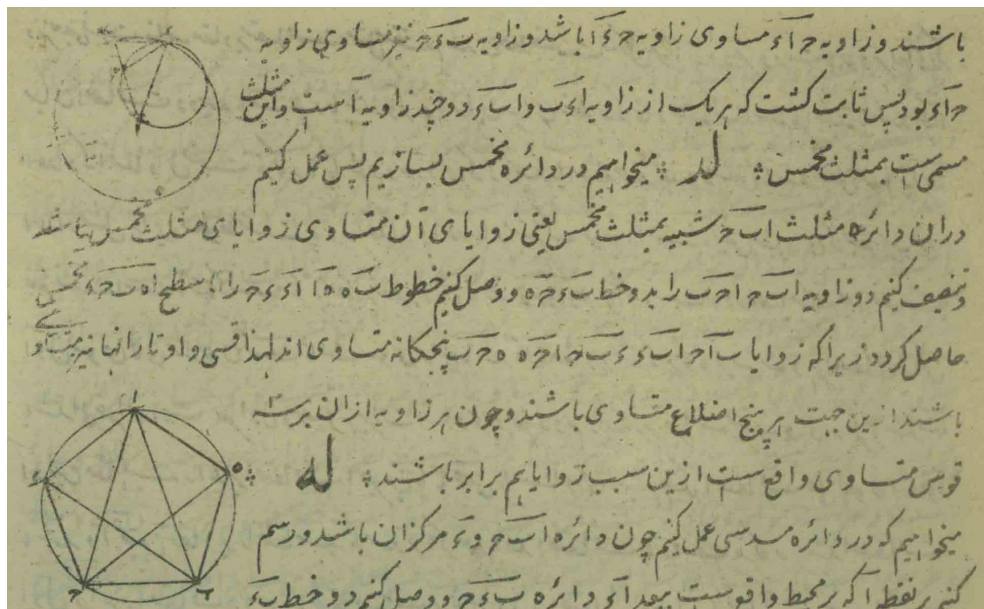 باشند و زاویه ح ا ء مساوی زاویه ح ء ا باشد و زاویه ب ء ح نیز مساوی زاویه
ح ا ء بود پس ثابت کشت که هر یک از زاویه ا ء ب و ا ب ء دو چند زاویه ا است و این مثلث
مسمی است بمثلث مخمس لد میخواهیم در دائره مخمس بسازیم پس عمل کنیم
دران دائره مثلث ا ب ح شبیه بمثلث مخمس یعنی زوایای آن متساوی زوایای مثلث مخمس باشد
و تنصیف کنیم دو زاویه ا ب ح ا ح ب را بدو خط ب ء ح ه و وصل کنیم خطوط ب ه ه ا ا ء ء ح را سطح ا ه ب ح ء مخمسی
حاصل کردد زیرا که زوایا ب ا ح ا ب ء ء ب ح ا ح ه ه ح ب پنجکانه متساوی اند لهذا قسی و اوتار انها نیز متساوی
باشند ازین جهت هر پنج اضلاع متساوی باشند و چون هر زاویه ازان بر سه
قوس متساوی واقع ست ازین سبب زوایا هم برابر باشند له
میخواهیم که در دائره مسدسی عمل کنیم چون دائره ا ب ح و ء مرکز ان باشد و رسم
کنیم بر نقطه ا که بر محیط واقع ست ببعد ا ء دائره ب ء ح و وصل کنیم دو خط ب ء